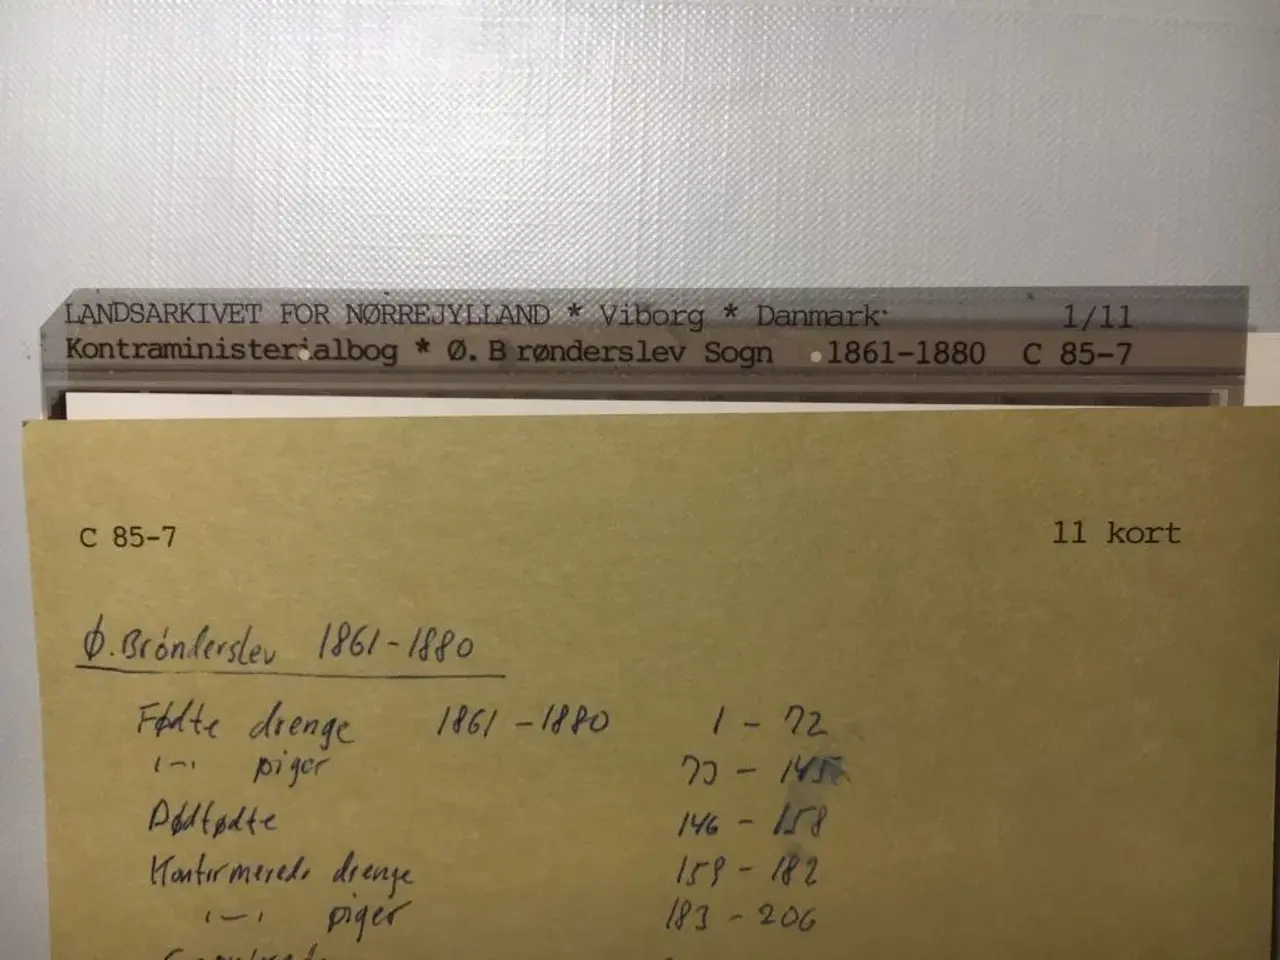 LANDSARKIVET FOR NØRREJYLLAND * Viborg * Danmark 1/11
Kontraministerialbog * Ø. Brønderslev Sogn 1861-1880 C 85-7
C 85-7 11 kort
Ø. Brønderslev 1861-1880
Fødte drenge 1861-1880 1 - 72
-"- piger 73 - 145
Dødfødte 146 - 158
Konfirmerede drenge 159 - 182
-"- piger 183 - 206